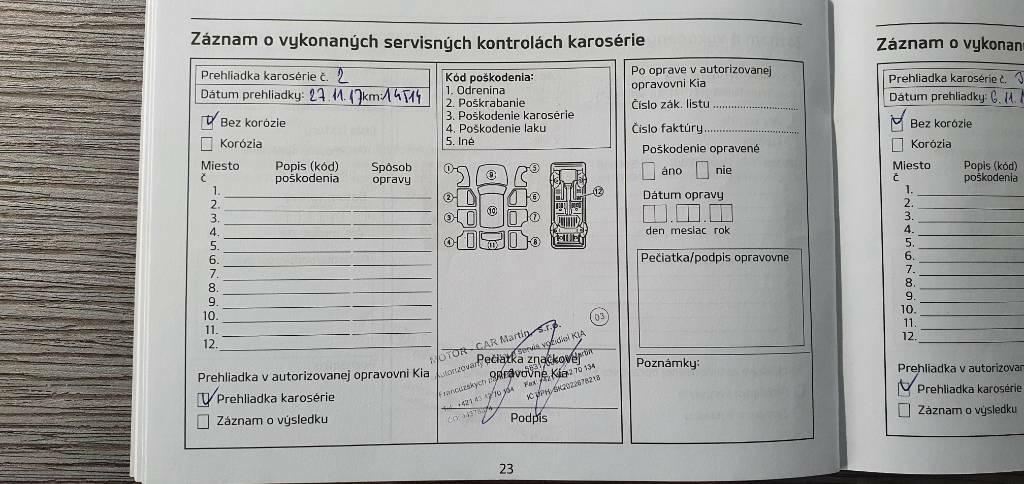 Záznam o vykonaných servisných kontrolách karosérie
Prehliadka karosérie č. 2
Dátum prehliadky: 27.11.17 km: 14514
Bez korózie
Korózia
Miesto č
Popis (kód) poškodenia
Spôsob opravy
1.
2.
3.
4.
5.
6.
7.
8.
9.
10.
11.
12.
Prehliadka v autorizovanej opravovni Kia
Prehliadka karosérie
Záznam o výsledku
Kód poškodenia:
1. Odrenina
2. Poškrabanie
3. Poškodenie karosérie
4. Poškodenie laku
5. Iné
1
2
3
4
9
10
11
5
6
7
8
12
03
MOTOR - CAR Martin, s.r.o.
Autorizovaný servis vozidiel KIA
Pečiatka značkovej
opravovne Kia
Podpis
Po oprave v autorizovanej
opravovni Kia
Číslo zák. listu
Číslo faktúry
Poškodenie opravené
áno nie
Dátum opravy
den mesiac rok
Pečiatka/podpis opravovne
Poznámky:
23
Záznam o vykonan
Prehliadka karosérie č.
Dátum prehliadky:
Bez korózie
Korózia
Miesto č
Popis (kód) poškodenia
1.
2.
3.
4.
5.
6.
7.
8.
9.
10.
11.
12.
Prehliadka v autorizovan
Prehliadka karosérie
Záznam o výsledku